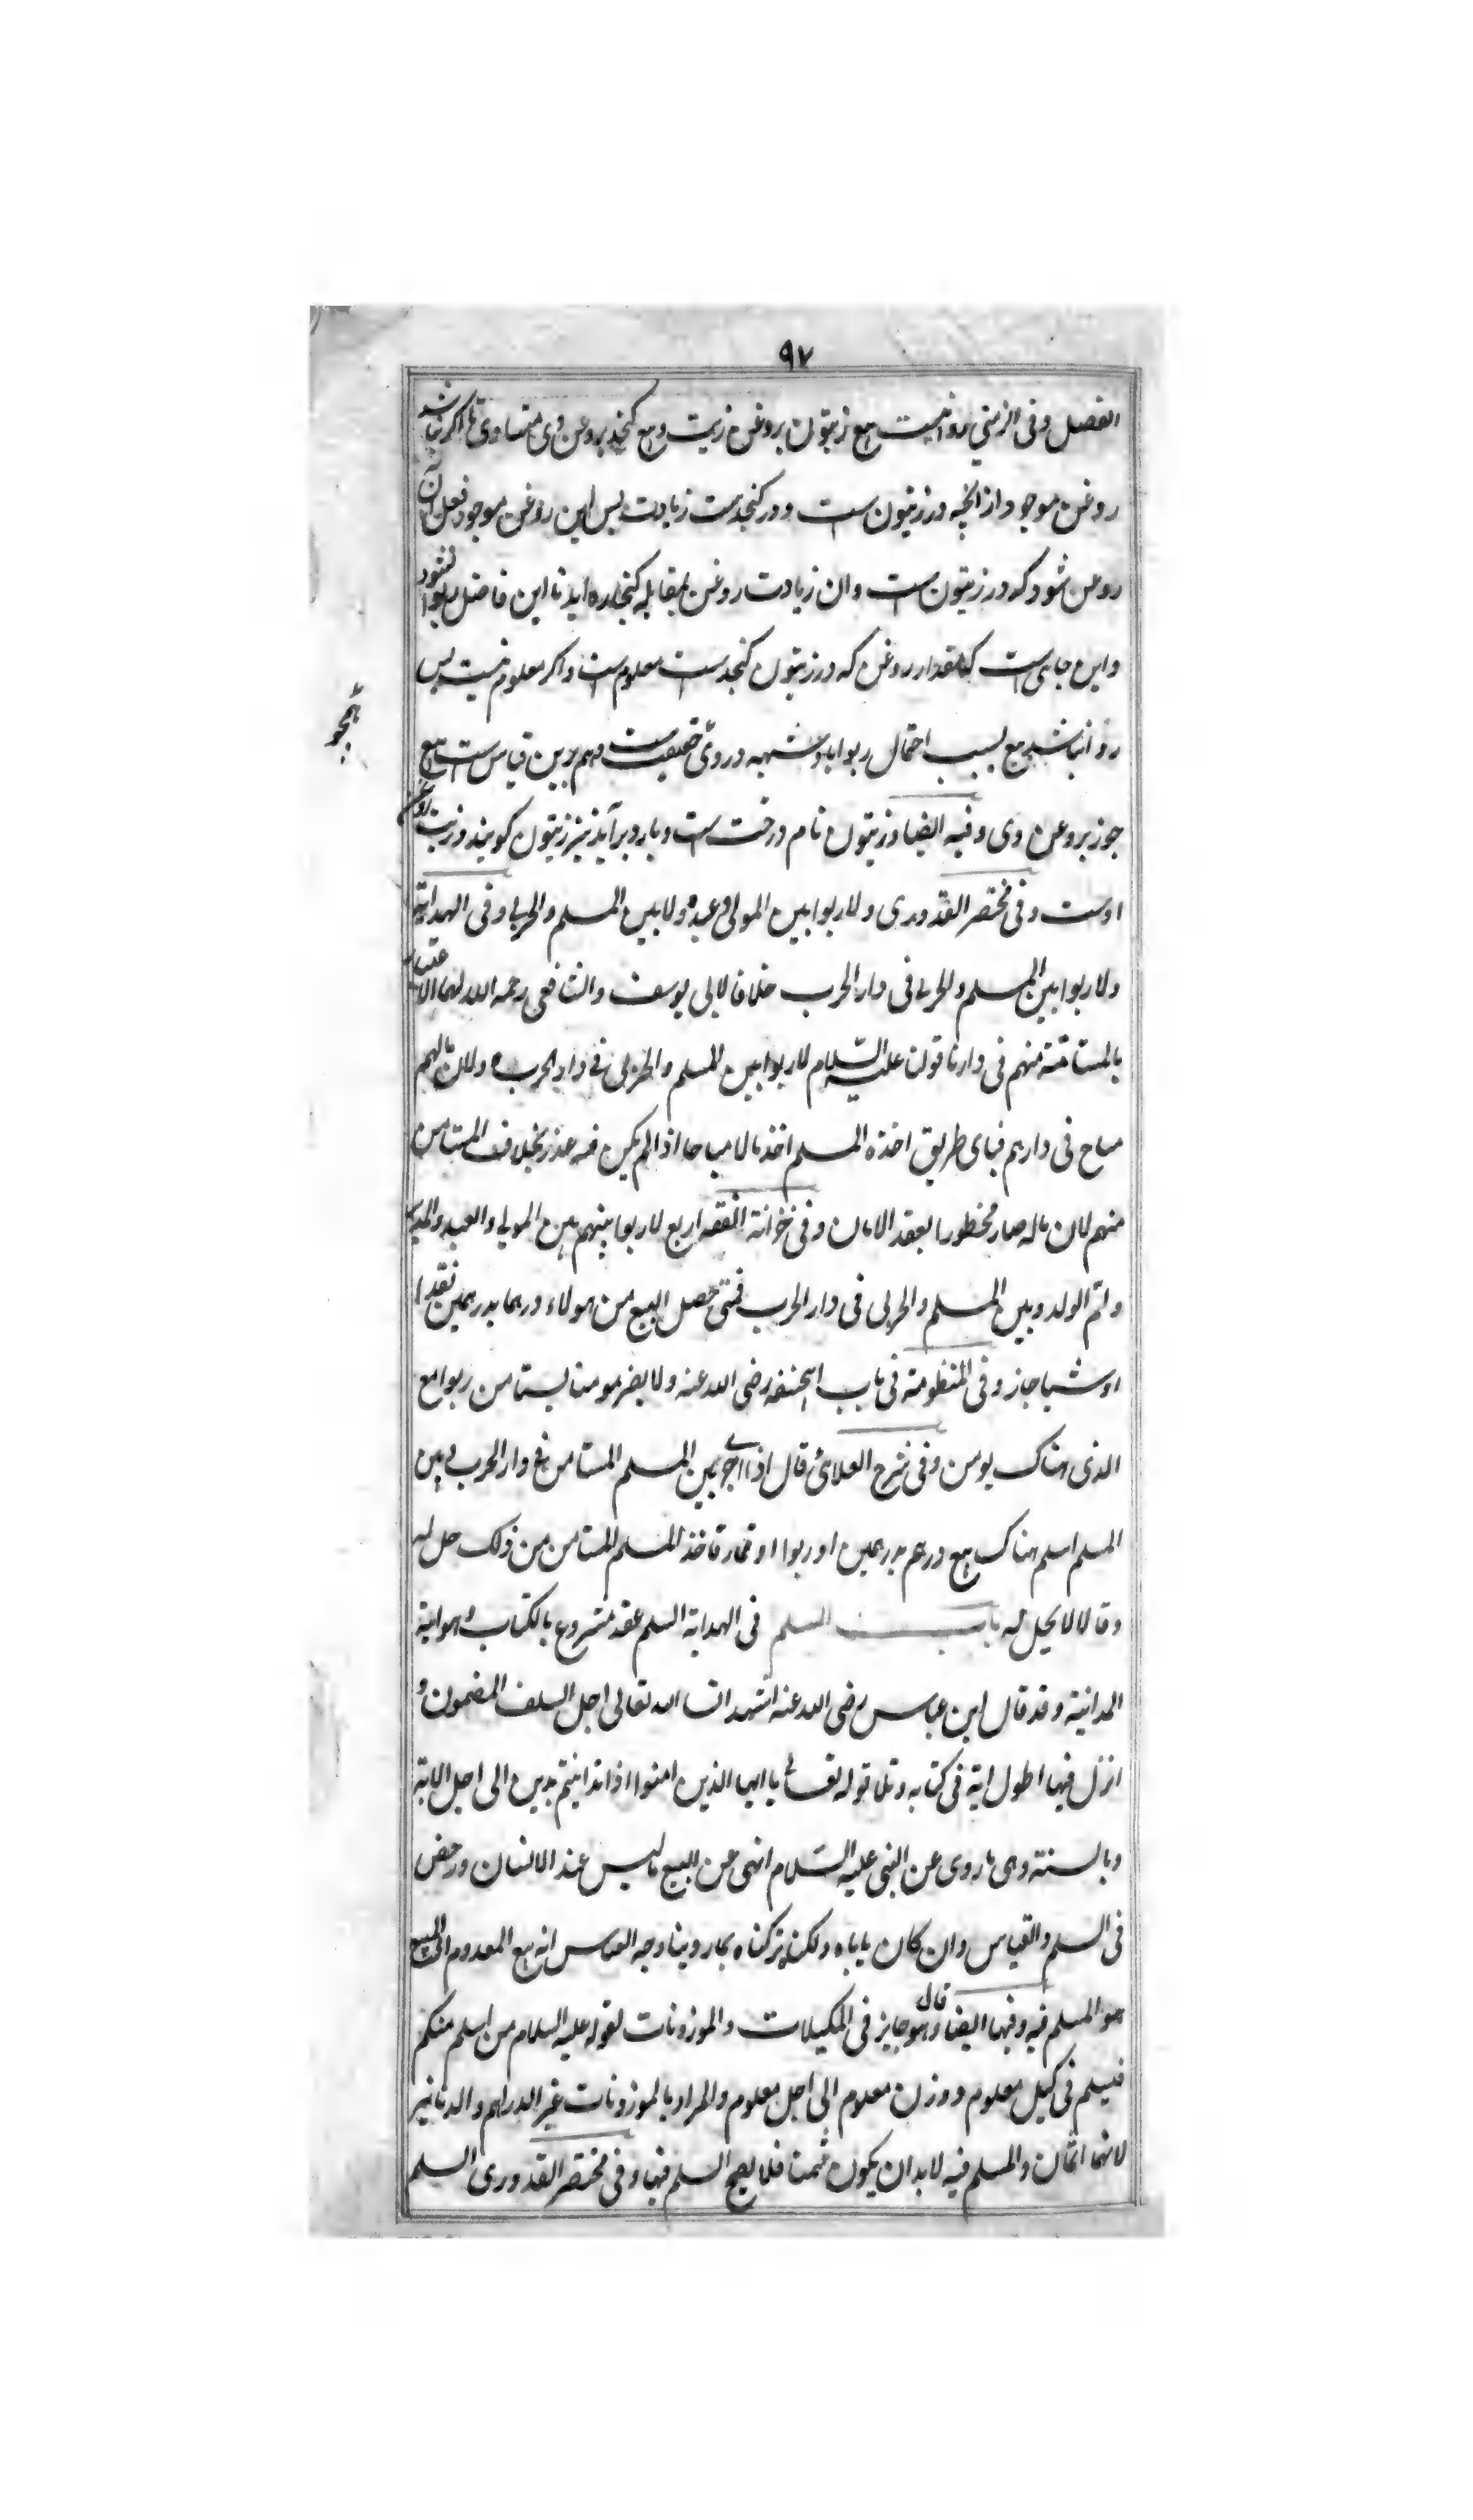 ٩٧
الفصل وفی الزمنی روا نیست بیع زیتون بروغن زیت وبیع کنجد بروغن وی متساوی تا اکر نباشد
روغن موجود از انچه در زیتون ست ودر کنجدست زیادت پس این روغن موجود فعل آن
روغن شود که در زیتون ست وان زیادت روغن بمقابله کنجاره اید تا این فاضل ربوا نشود
واین جای ست که مقدار روغن که در زیتون کنجدست معلوم ست واکر معلوم نیست پس
روا نباشد بیع بسبب احتمال ربوا وشبهه در وی حقیقت ست وهم برین قیاس ست بیع
همجو
جوز بروغن وی وفیه ایضا وزیتون نام درخت ست وبار وبرآید نیز زیتون کویند وزیت روغن
اوست وفی مختصر القدوری ولا ربوا بین المولی وعبده ولا بین المسلم والحربی وفی الهدایة
ولا ربوا بین المسلم والحربی فی دار الحرب خلافا لابی یوسف والشافعی رحمه الله لهما الاعتبار
بالمستامنة منهم فی دارنا قوله علیه السلام لا ربوا بین المسلم والحربی فی دار الحرب ولان مالهم
مباح فی دارهم فبای طریق اخذه المسلم اخذ مالا مباحا اذا لم یکن فیه عذر بخلاف المستامن
منهم لان ماله صار محظورا بعقد الامان وفی خزانة الفقه اربع لا ربوا بینهم بین المولی والعبد والمدبر
وام الولد وبین المسلم والحربی فی دار الحرب فمتی حصل البیع من هولاء درهما بدرهمین نقدا
او نسیا جاز وفی المنظومة فی باب ابیحنیفه رضی الله عنه ولا یضر مومنا یستامن ربوا مع
الذی هناک یومن وفی شرح العلائی قال اذا اجری بین المسلم المستامن فی دار الحرب وبین
المسلم اسلم هناک بیع درهم بدرهمین او ربوا او قمار فاخذ المسلم المستامن من ذلک حل له
وقالا لا یحل له باب السلم فی الهدایة السلم عقد مشروع بالکتاب وهو ایة
المداینة وقد قال ابن عباس رضی الله عنه اشهد ان الله تعالی اجل السلف المضمون و
انزل فیها اطول ایة فی کتابه وتلا قوله تعالی یا ایها الذین امنوا اذا تداینتم بدین الی اجل الایة
وبالسنة وهی ما روی عن النبی علیه السلام انهی عن البیع ما لیس عند الانسان ورخص
فی السلم والقیاس وان کان یاباه ولکنه ترکناه بما روینا وجه القیاس انه بیع المعدوم اذ المبیع
هو المسلم فیه وفیها ایضا قال وهو جایز فی المکیلات والموزونات لقوله علیه السلام من اسلم منکم
فلیسلم فی کیل معلوم ووزن معلوم الی اجل معلوم والمراد بالموزونات غیر الدراهم والدنانیر
لانها اثمان والمسلم فیه لابد ان یکون مثمنا فلا یصح السلم فیها وفی مختصر القدوری السلم